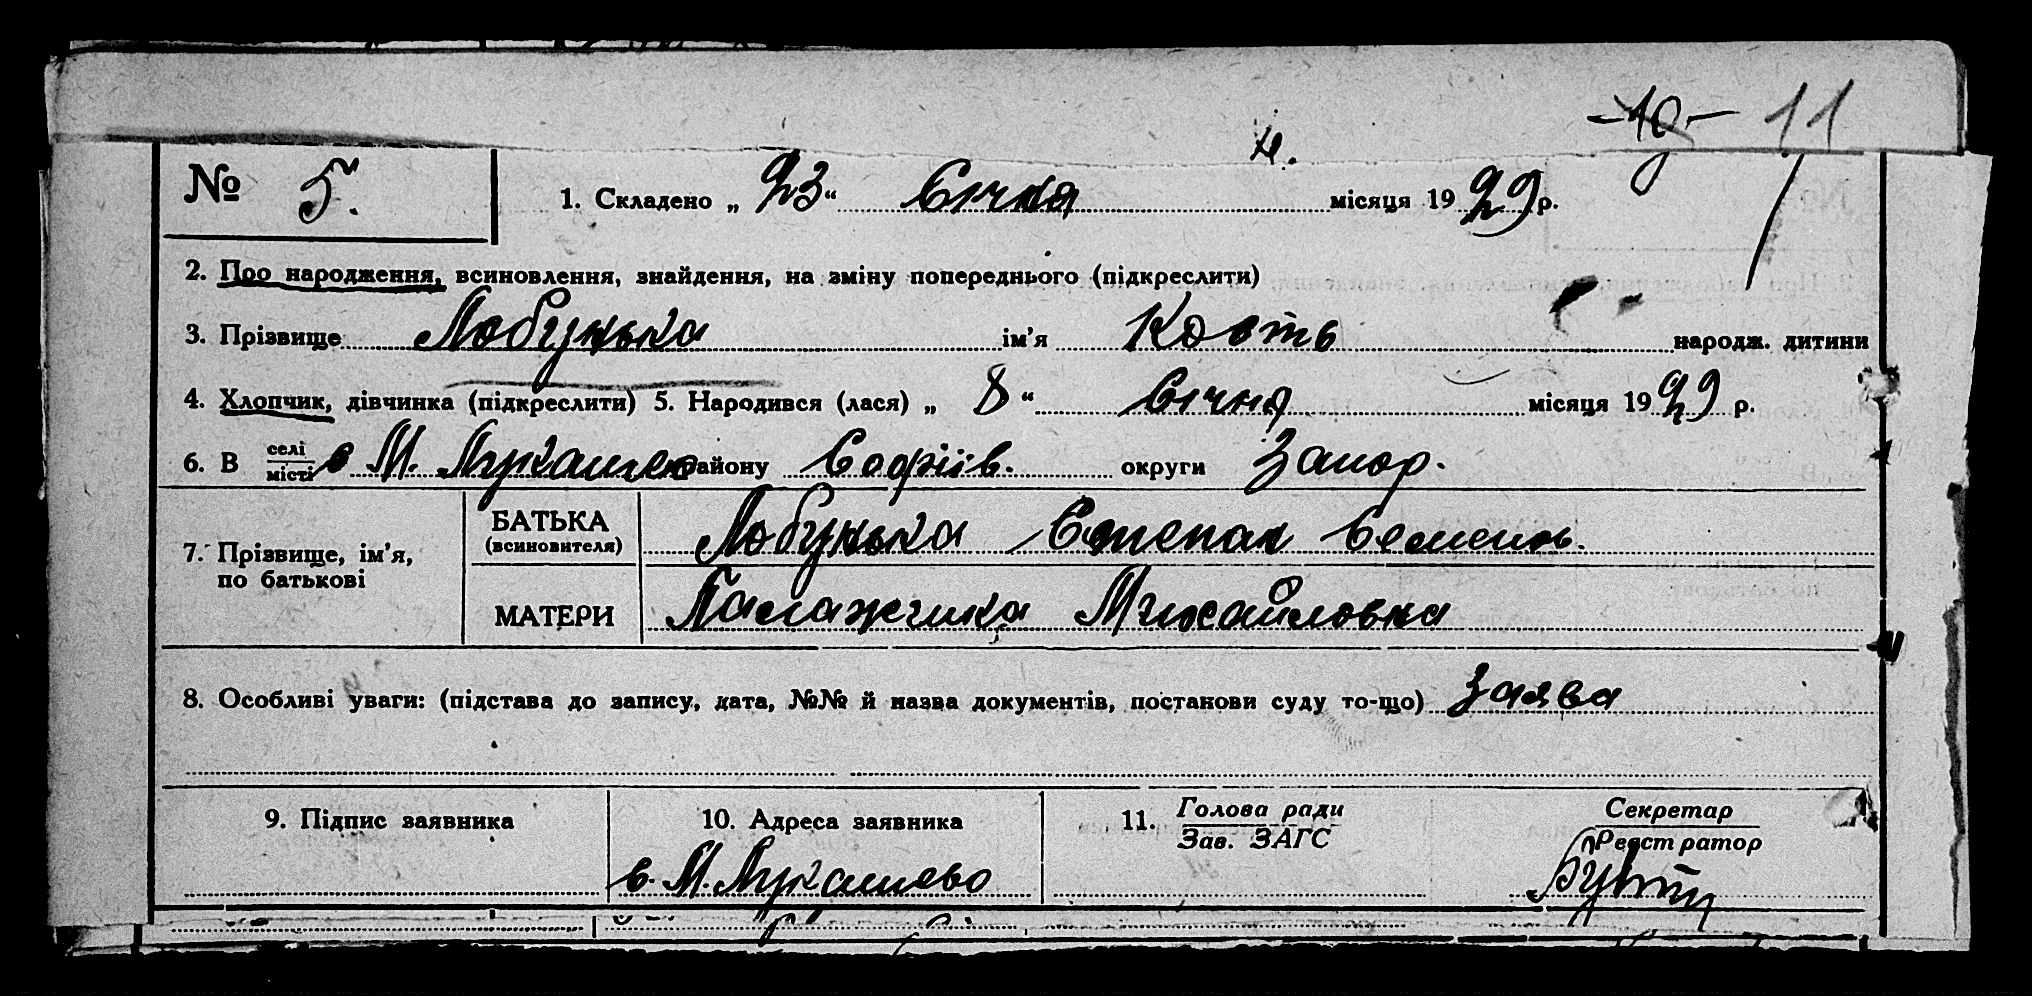 -10- 11
№ 5. 1. Складено „ 23 “ Січня місяця 1929 р.
2. Про народження, всиновлення, знайдення, на зміну попереднього (підкреслити)
3. Прізвище Лобунька ім’я Кость народж. дитини
4. Хлопчик, дівчинка (підкреслити) 5. Народився (лася) „ 8 “ Січня місяця 1929 р.
6. В селі/місті с М. Лукашево району Софіїв. округи Запор.
7. Прізвище, ім’я, по батькові
БАТЬКА (всиновителя) Лобунька Степан Семенов.
МАТЕРИ Палажчика Михайловна
8. Особливі уваги: (підстава до запису, дата, №№ й назва документів, постанови суду то-що) Заява
9. Підпис заявника 10. Адреса заявника 11. Голова ради Секретар
Зав. ЗАГС Реєстратор
с. М. Лукашево